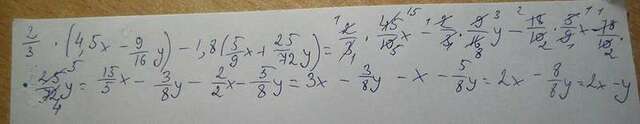 2/3 · (4,5x - 9/16 y) - 1,8(5/9 x + 25/72 y) = 2/3 · 45/10 x - 2/3 · 9/16 y - 18/10 · 5/9 x - 18/10
· 25/72 y = 15/5 x - 3/8 y - 2/2 x - 5/8 y = 3x - 3/8 y - x - 5/8 y = 2x - 8/8 y = 2x - y